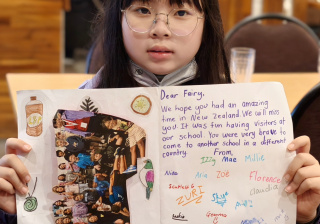 Dear Fairy,
We hope you had an amazing
time in New Zealand. We will miss
you. It was fun having visitors at
our school. You were very brave to
come to another school in a different
country.
From,
Izzy Mae Millie
Aria Joe Florence
Claudia
ZURI